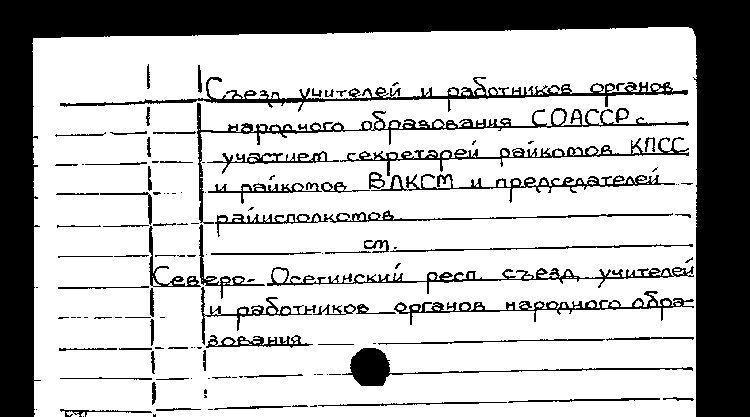 Съезд учителей и работников органов
народного образования СОАССР с
участием секретарей райкомов КПСС
и райкомов ВЛКСМ и председателей
райисполкомов.
см.
Северо-Осетинский респ. съезд учителей
и работников органов народного обра-
зования